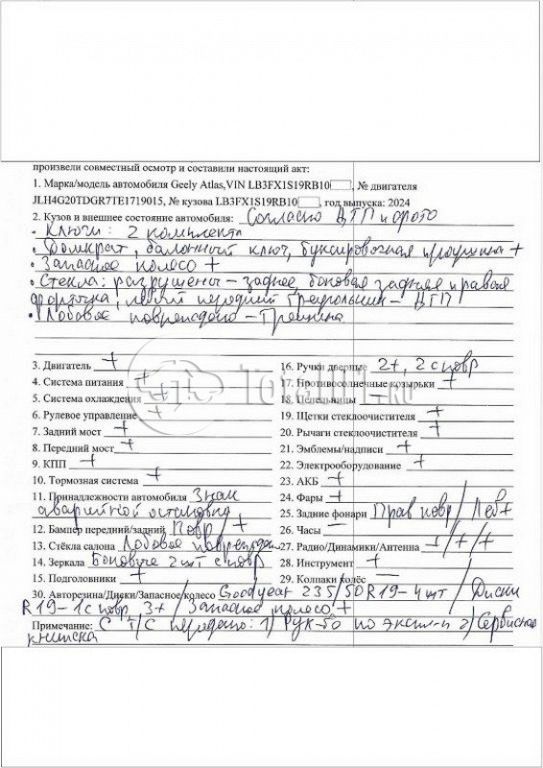 произвели совместный осмотр и составили настоящий акт:
1. Марка/модель автомобиля Geely Atlas,VIN LB3FX1S19RB10, № двигателя
JLH4G20TDGR7TE1719015, № кузова LB3FX1S19RB10, год выпуска: 2024
2. Кузов и внешнее состояние автомобиля: Согласно ДТП и фото
• Ключи: 2 комплекта
• Домкрат, балонный ключ, буксировочная проушина +
• Запасное колесо +
• Стекла: разрушены – заднее, боковая задняя правая
форточка, левый передний треугольник – ДТП
• Лобовое повреждено – Трещина
3. Двигатель +
4. Система питания +
5. Система охлаждения +
6. Рулевое управление +
7. Задний мост +
8. Передний мост +
9. КПП +
10. Тормозная система +
11. Принадлежности автомобиля Знак
аварийной остановки
12. Бампер передний/задний Повр / +
13. Стёкла салона Лобовое повреждено
14. Зеркала Боковые 2 шт с повр
15. Подголовники +
16. Ручки дверные 2+, 2 с повр
17. Противосолнечные козырьки +
18. Пепельницы —
19. Щетки стеклоочистителя +
20. Рычаги стеклоочистителя +
21. Эмблемы/надписи +
22. Электрооборудование +
23. АКБ +
24. Фары +
25. Задние фонари Прав повр / Лев +
26. Часы —
27. Радио/Динамики/Антенна + / + / +
28. Инструмент +
29. Колпаки колёс —
30. Авторезина/Диски/Запасное колесо Goodyear 235/50 R19 – 4 шт / Диски
R19 – 1 с повр, 3+ / Запасное колесо +
Примечание: С Т/С передано: 1) Рук-во по экспл-и 2) Сервисная
книжка